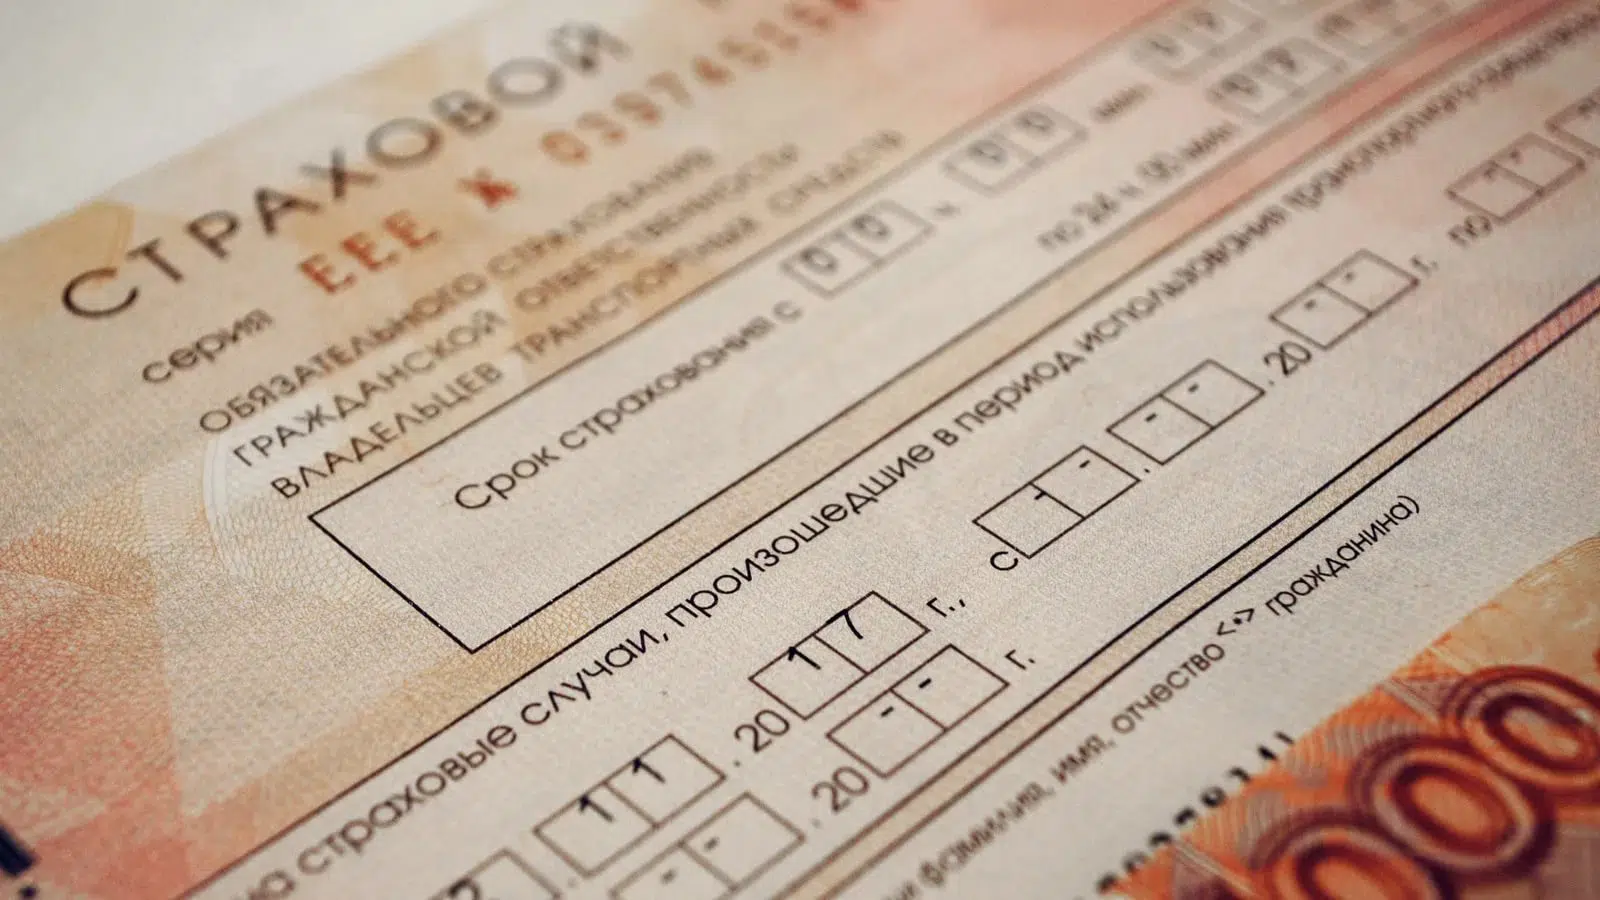 СТРАХОВОЙ
серия ЕЕЕ Ж
ОБЯЗАТЕЛЬНОГО СТРАХОВАНИЯ
ГРАЖДАНСКОЙ ОТВЕТСТВЕННОСТИ
ВЛАДЕЛЬЦЕВ ТРАНСПОРТНЫХ СРЕДСТВ
Срок страхования с 00 ч. 00 мин
по 24 ч 00 мин
на страховые случаи, произошедшие в период использования транспортного
11.2017 г., с --.--.20-- г. по --
--.20-- г.
фамилия, имя, отчество <*> гражданина)
000